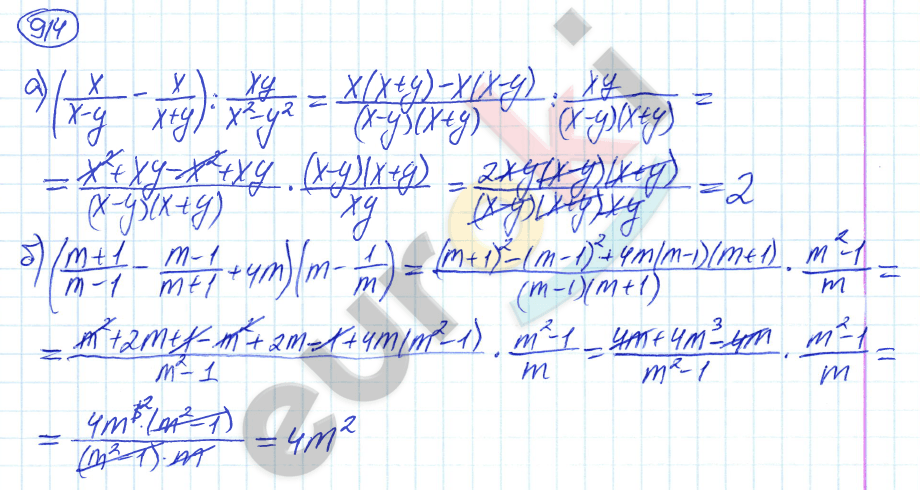 914
а) (x/(x-y) - x/(x+y)) : xy/(x²-y²) = (x(x+y)-x(x-y))/((x-y)(x+y)) : xy/((x-y)(x+y)) =
= (x²+xy-x²+xy)/((x-y)(x+y)) · ((x-y)(x+y))/xy = (2xy(x-y)(x+y))/((x-y)(x+y)xy) = 2
б) ((m+1)/(m-1) - (m-1)/(m+1) + 4m)(m - 1/m) = ((m+1)²-(m-1)²+4m(m-1)(m+1))/((m-1)(m+1)) · (m²-1)/m =
= (m²+2m+1-m²+2m-1+4m(m²-1))/(m²-1) · (m²-1)/m = (4m+4m³-4m)/(m²-1) · (m²-1)/m =
= (4m³²·(m²-1))/((m²-1)·m) = 4m²
euroki